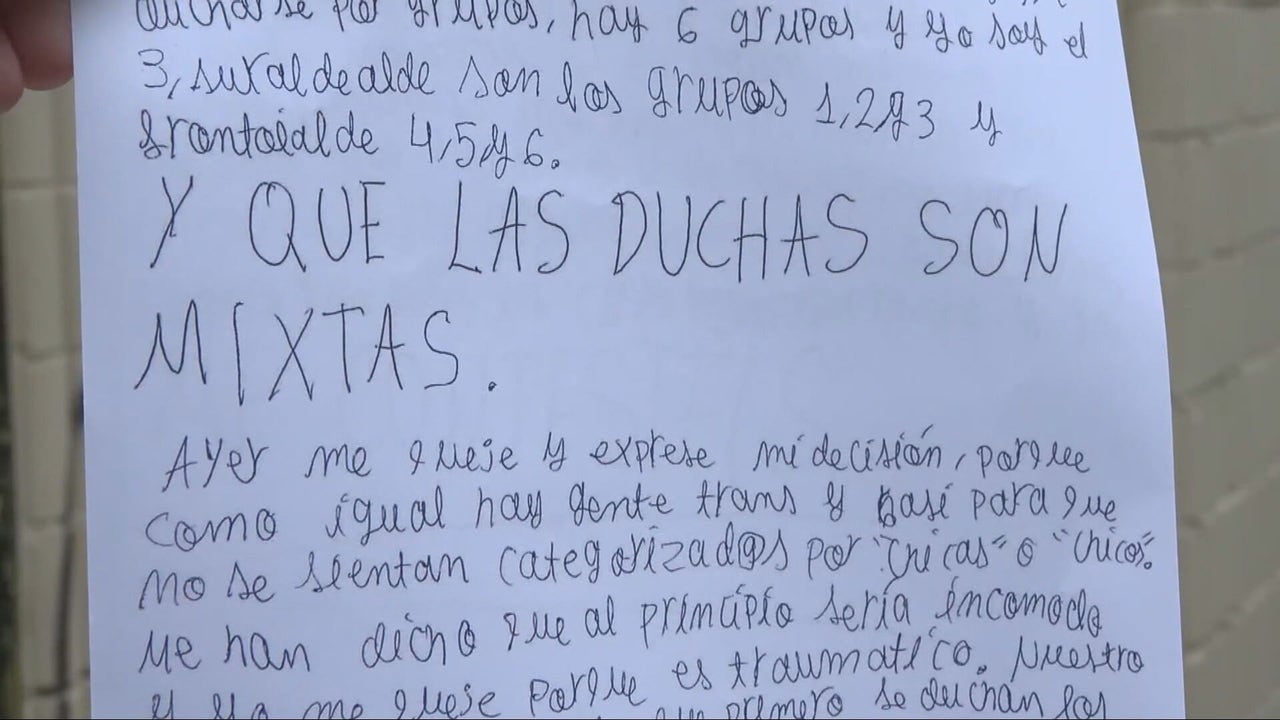 ducharse por grupos, hay 6 grupos y yo soy el
3, suraldealde son los grupos 1,2y3 y
frontoialde 4,5y6.
Y QUE LAS DUCHAS SON
MIXTAS.
Ayer me queje y exprese mi decisión, porque
como igual hay gente trans y pasé para que
no se sientan categorizad@s por "chicas" o "chicos".
Me han dicho que al principio sería incomodo
y ya me queje porque es traumatico. Nuestro
primero se duchan los